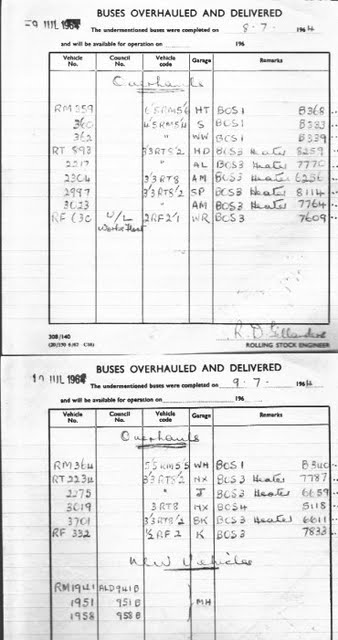 9 JUL 1964 BUSES OVERHAULED AND DELIVERED
The undermentioned buses were completed on 8.7. 1964
and will be available for operation on 196
Vehicle No. Council No. Vehicle code Garage Remarks
Overhauls
RM359 6'5RM5'6 HT BCS1 B368
360 4'5RM5'4 S BCS1 B383
362 " WW BCS1 B339
RT 893 3'3RT8'2 HD BCS3 Heater 8259
2217 " AL BCS3 Heater 7770
2304 3'3RT8 AM BCS3 Heater 6236
2997 3'3RT8'2 SP BCS3 Heater 8114
3023 " AM BCS3 Heater 7764
RF 630 U/L 2RF2'1 WR BCS3 7609
308/140
ROLLING STOCK ENGINEER
10 JUL 1964 BUSES OVERHAULED AND DELIVERED
The undermentioned buses were completed on 9.7. 1964
and will be available for operation on 196
Vehicle No. Council No. Vehicle code Garage Remarks
Overhauls
RM364 5'5RM5'5 WH BCS1 B340
RT2234 3'3RT8'2 NX BCS3 Heater 7787
2275 " J BCS3 Heater 6659
3019 3RT8 NX BCS4 5118
3701 3'3RT8'2 BK BCS3 Heater 6611
RF 332 ½RF2 K BCS3 7833
New Vehicles
RM1941 ALD941B
1951 951B MH
1958 958B